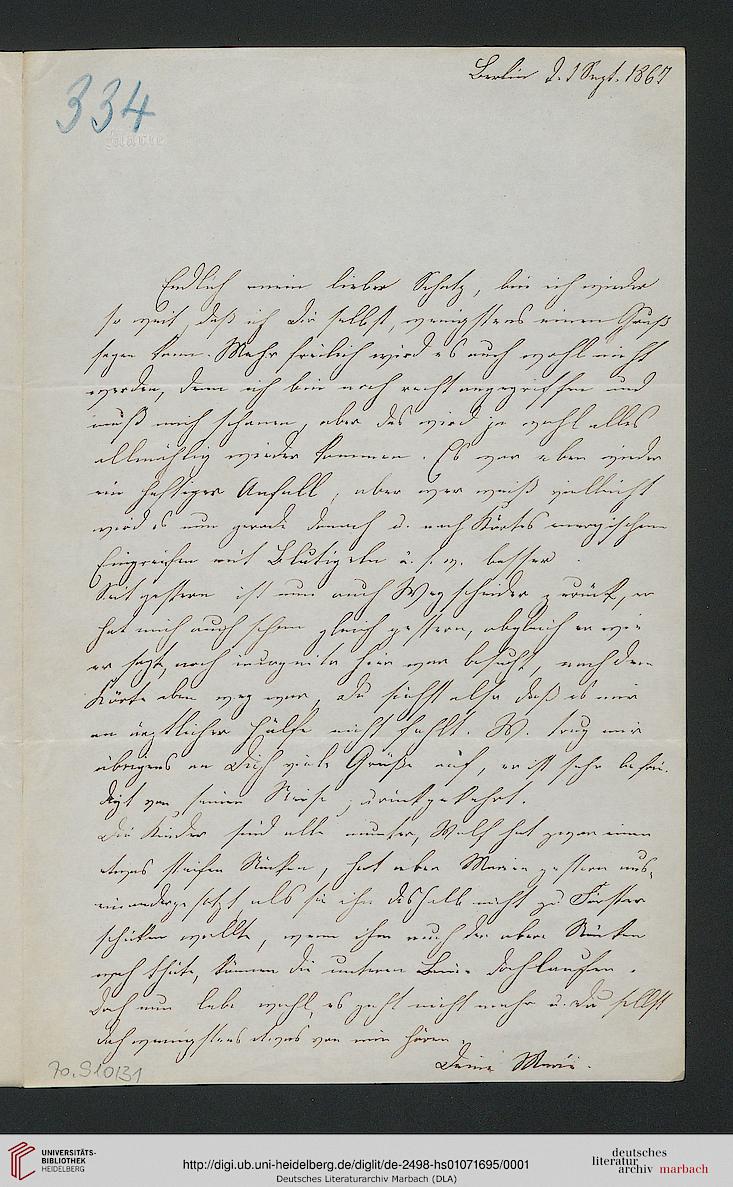 Berlin d. 1 Sept. 1867
334
Endlich mein lieber Schatz, bin ich wieder
so weit, daß ich Dir selbst, wenigstens einen Gruß
sagen kann. Mehr freilich wird es auch wohl nicht
werden, denn ich bin noch recht angegriffen und
muß mich schonen, aber das wird ja wohl alles
allmählig wieder kommen. Es war eben wieder
ein heftiger Anfall, aber wer weiß vielleicht
wird es nun gerade danach u. nach Körtes energischem
Eingreifen mit Blutigeln u. s. w. besser.
Seit gestern ist nun auch Wegscheider zurück, er
hat mich auch schon gleich gestern, obgleich er wie
er sagt, noch incognito hier war besucht, nachdem
Körte eben weg war, Du siehst also daß es mir
an ärztlicher Hülfe nicht fehlt. W. trug mir
übrigens an Dich viele Grüße auf, er ist sehr befrie-
digt von seiner Reise zurückgekehrt.
Die Kinder sind alle munter, Wolf hat zwar einen
etwas steifen Nacken, hat aber Marien gestern aus-
einandergesetzt, als sie ihn deshalb nicht zu Förster
schicken wollte, wenn ihm auch der obere Nacken
weh thäte, können die unteren Beine doch laufen.
Doch nun lebe wohl, es geht nicht mehr u. Du sollst
doch wenigstens etwas von mir hören.
Deine Marie.
70.910/31
UNIVERSITÄTS-
BIBLIOTHEK
HEIDELBERG
http://digi.ub.uni-heidelberg.de/diglit/de-2498-hs01071695/0001
Deutsches Literaturarchiv Marbach (DLA)
deutsches
literatur
archiv marbach